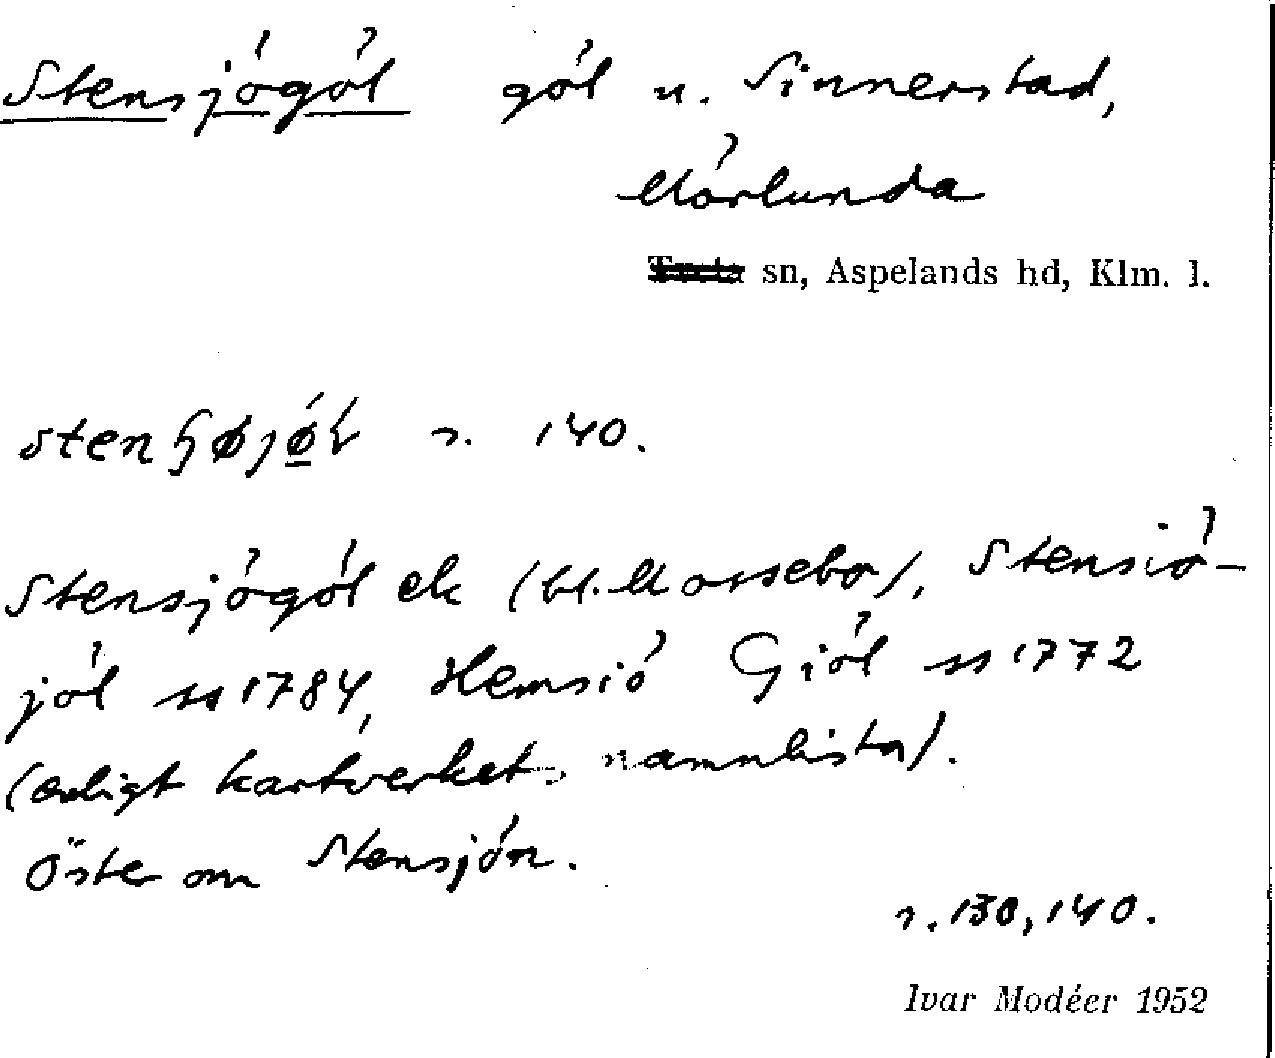 Stensjögöl göl u. Sinnerstad,
Mörlunda
sn, Aspelands hd, Klm. l.
s. 140.
Stensjögöl ek (bl. Mossebo), Stensiö-
jöl ss 1784, Hemsiö Giöl ss 1772
(enligt kartverkets namnlista).
Öster om Stensjön.
s. 130, 140.
Ivar Modéer 1952